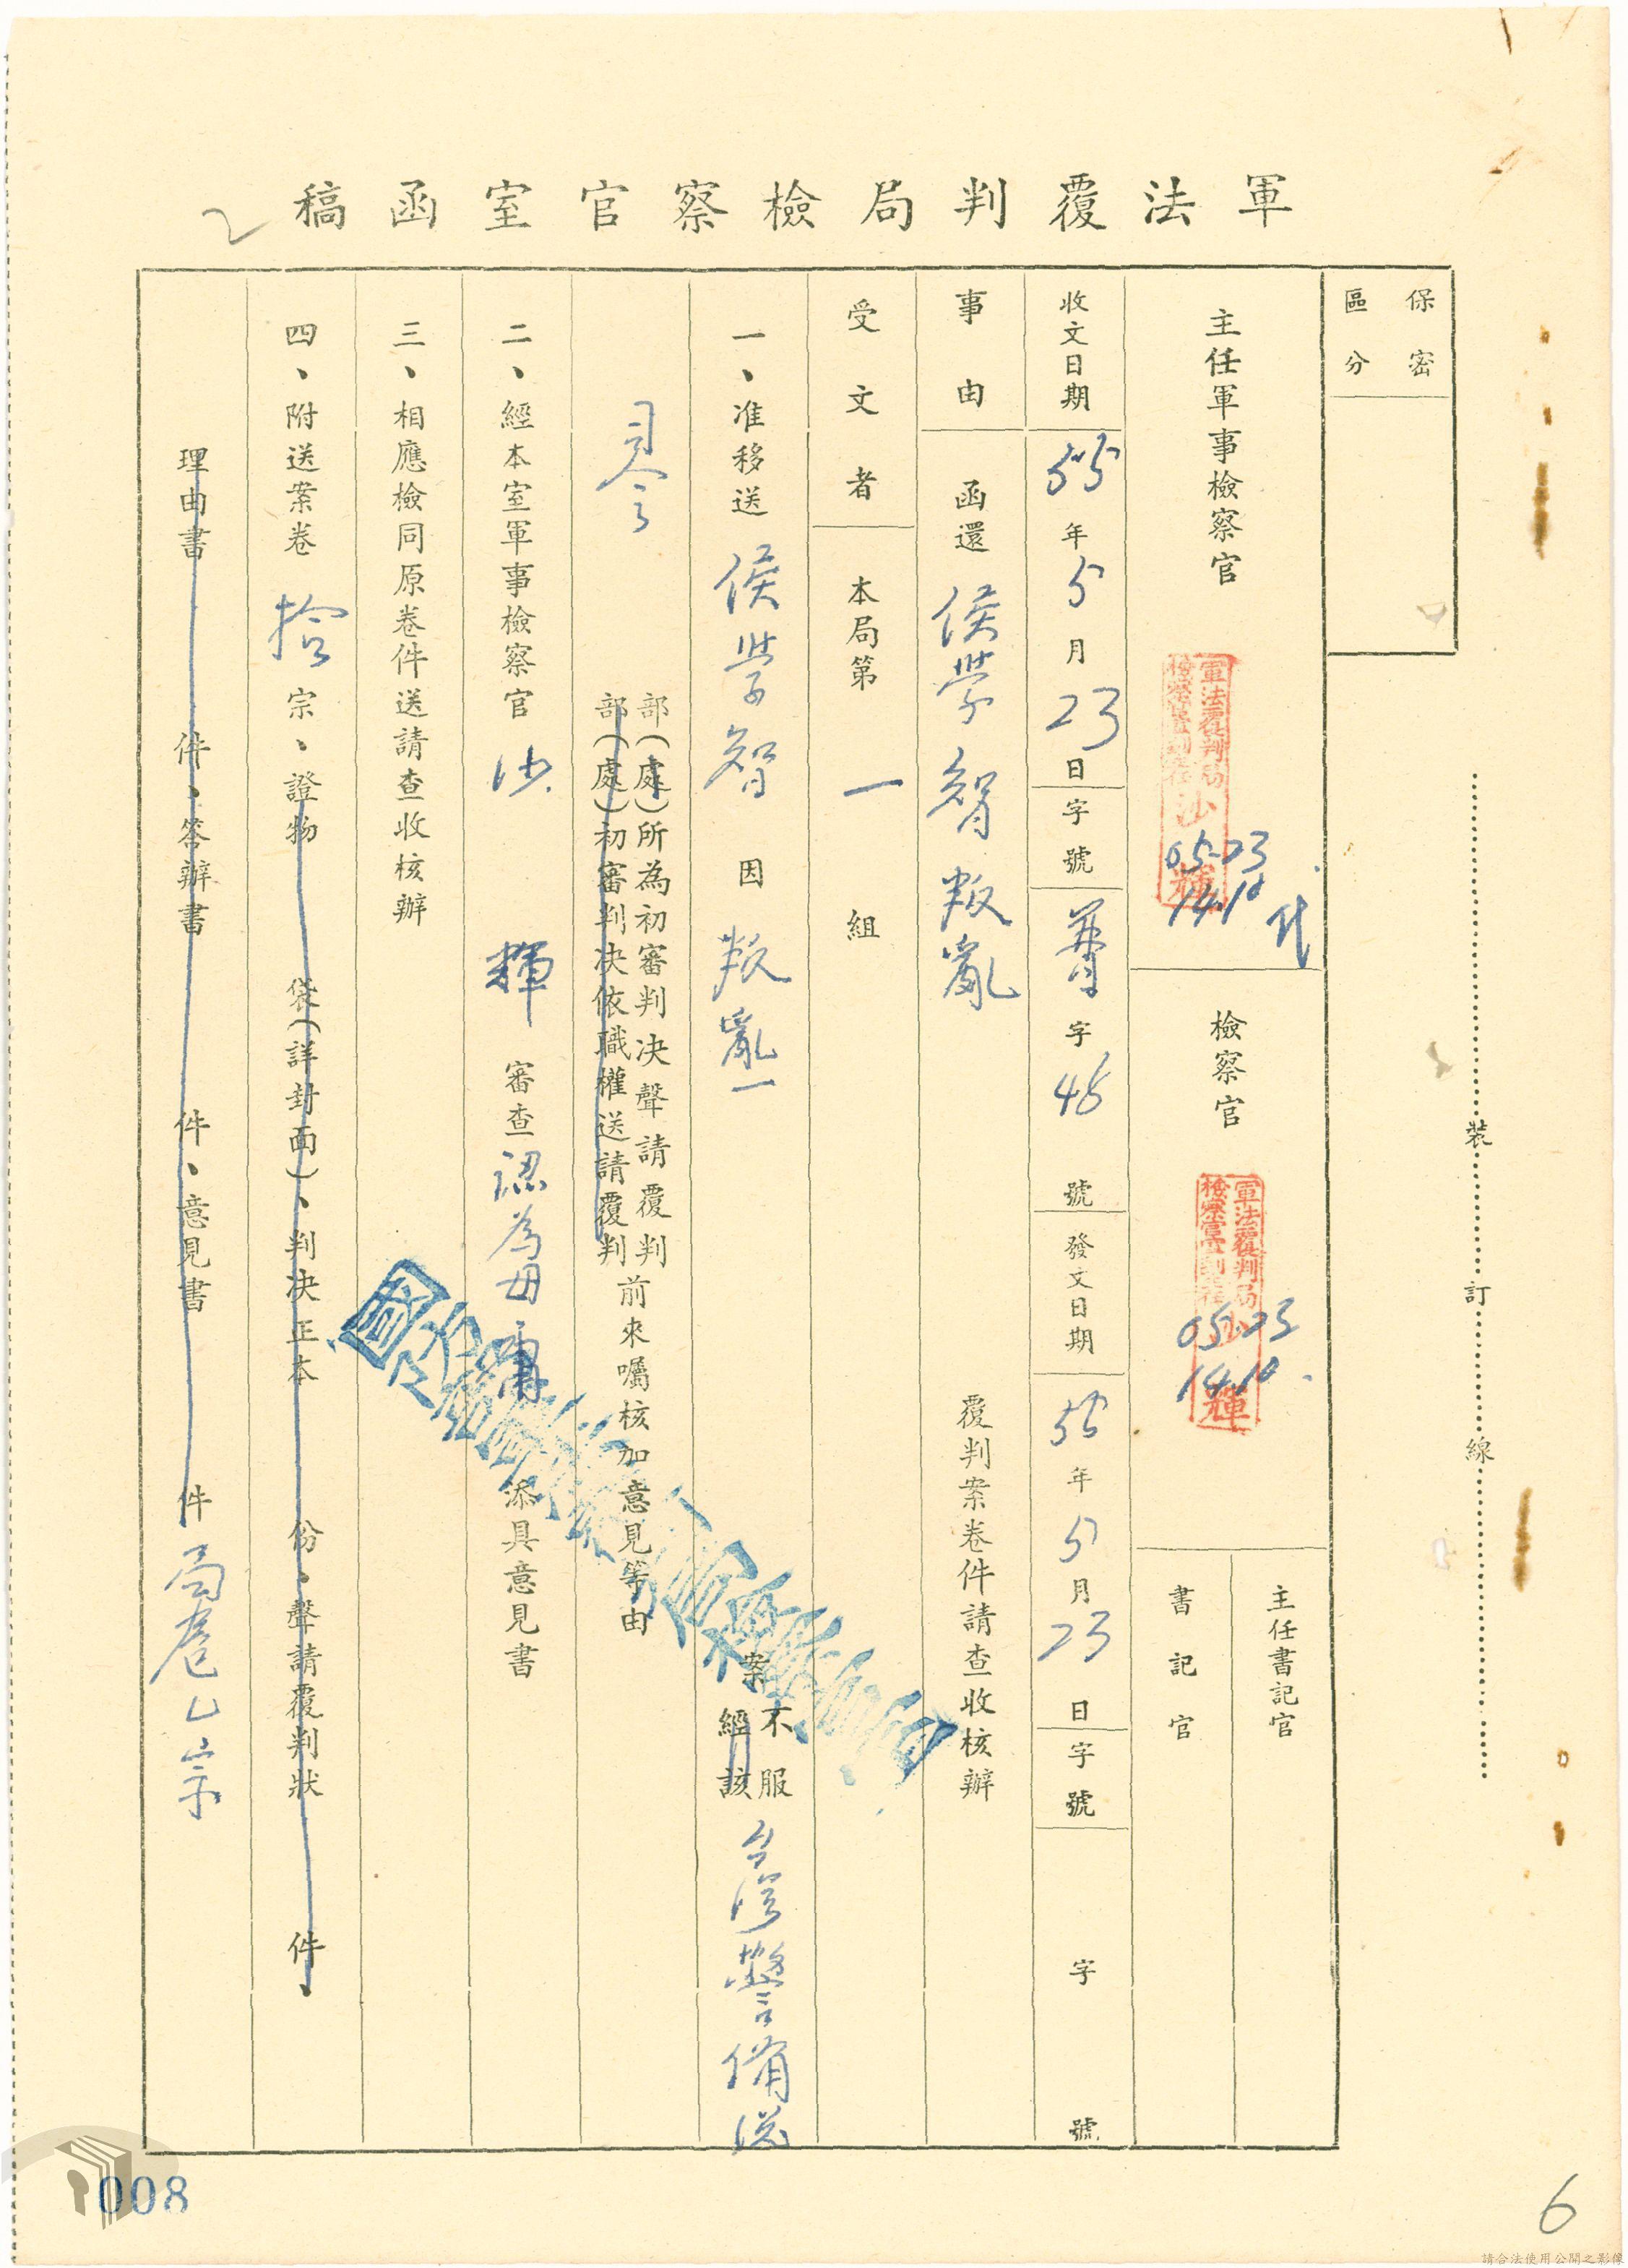 軍法覆判局檢察官室函稿
2
保密
區分
主任軍事檢察官
軍法覆判局
沙輝
05.23
14.10
代
檢察官
軍法覆判局
沙輝
05.23
14.10
主任書記官
書記官
收文日期 55年5月23日 字號 普字48號 發文日期 55年5月23日 字號 字 號
事由 函還 侯學智叛亂 覆判案卷件請查收核辦
受文者 本局第一組
一、准移送 侯學智 因 叛亂一 案 不服 經該 台灣警備總
司令 部(處)所為初審判决聲請覆判
部(處)初審判决依職權送請覆判
前來囑核加意見等由
二、經本室軍事檢察官 沙輝 審查認為毋庸添具意見書
三、相應檢同原卷件送請查收核辦
四、附送案卷 拾 宗、證物 袋(詳封面)、判决正本 份、聲請覆判狀 件、
理由書 件、答辯書 件、意見書 件 局卷乙宗
裝
訂
線
國家發展委員會檔案管理局
008
6
請合法使用公開之影像